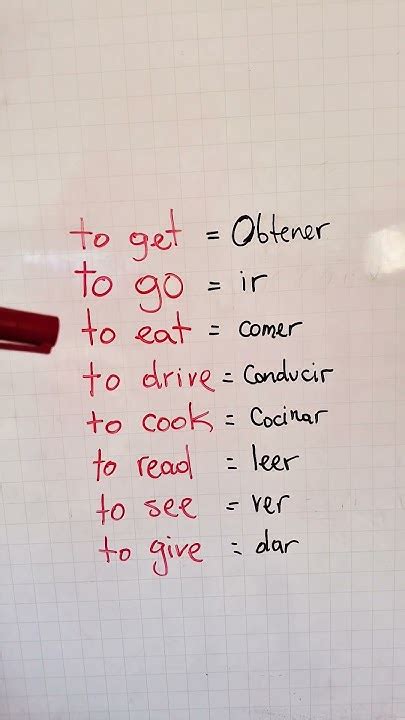 to get = Obtener
to go = ir
to eat = comer
to drive = Conducir
to cook = Cocinar
to read = leer
to see = ver
to give = dar